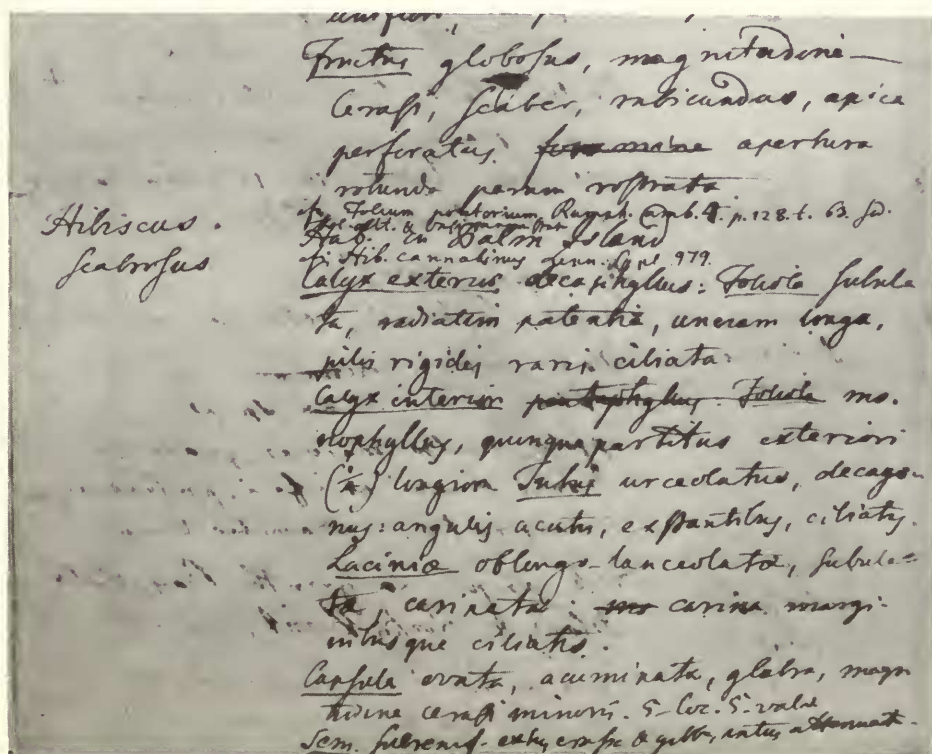 Fructus globosus, magnitudine
Cerasi, scaber, rubicundus, apice
perforatus. foramine apertura
rotunda parum rostrata
Folium Rumph. amb. 4. p. 128. t.
Hibiscus.
scabrosus
Hab. in Palm Island
Hib. cannabinus Linn. 979.
Calyx exterus decaphyllus: Foliola subula
ta, radiatim patentia, unciam longa,
pilis rigidis raris ciliata
Calyx interior pentaphyllus. Foliola mo.
nophyllus, quinquepartitus exteriori
(¼) longiora Tubus urceolatus, decago
nus: angulis acutis, exstantibus, ciliatis.
Laciniæ oblongo-lanceolatæ, subula=
tæ, carinata carina margi-
nibusque ciliatis.
Capsula ovata, acuminata, glabra, magn
tudine cerasi minoris. 5-loc. 5-valv
Sem. extus & gibba, intus